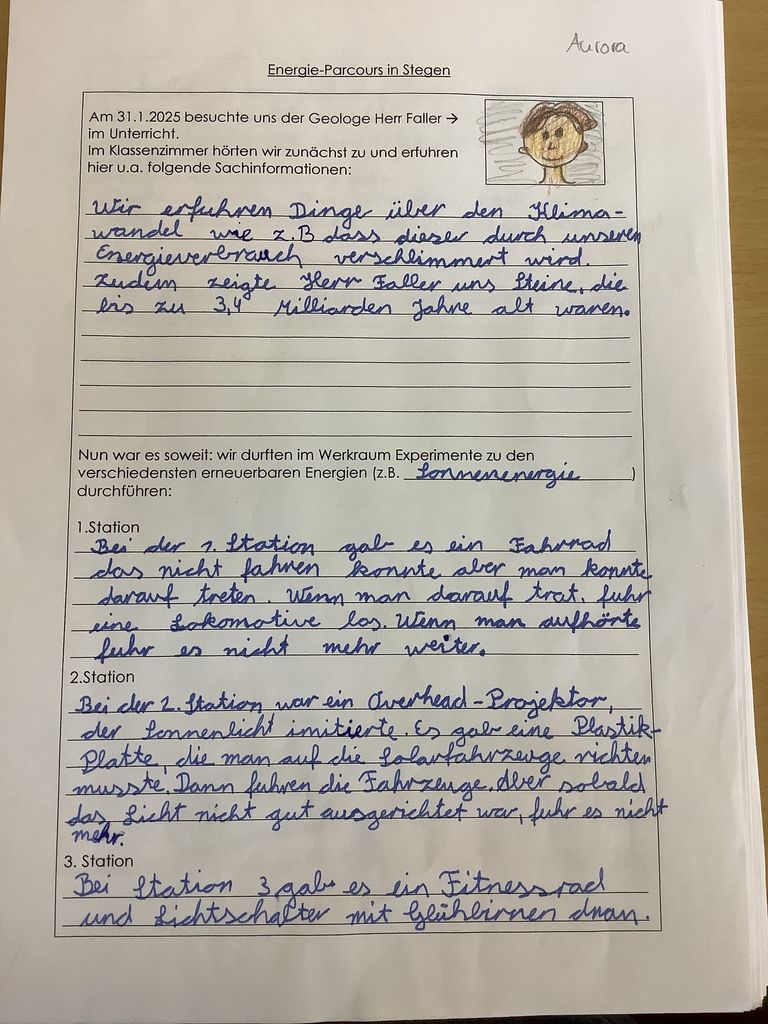 Aurora
Energie-Parcours in Stegen
Am 31.1.2025 besuchte uns der Geologe Herr Faller →
im Unterricht.
Im Klassenzimmer hörten wir zunächst zu und erfuhren
hier u.a. folgende Sachinformationen:
Wir erfuhren Dinge über den Klima-
wandel wie z.B dass dieser durch unseren
Energieverbrauch verschlimmert wird.
Zudem zeigte Herr Faller uns Steine, die
bis zu 3,4 Milliarden Jahre alt waren.
Nun war es soweit: wir durften im Werkraum Experimente zu den
verschiedensten erneuerbaren Energien (z.B. Sonnenenergie)
durchführen:
1.Station
Bei der 1. Station gab es ein Fahrrad
das nicht fahren konnte aber man konnte
darauf treten. Wenn man darauf trat, fuhr
eine Lokomotive los. Wenn man aufhörte
fuhr es nicht mehr weiter.
2.Station
Bei der 2. Station war ein Overhead-Projektor,
der Sonnenlicht imitierte. Es gab eine Plastik-
Platte, die man auf die Solarfahrzeuge richten
musste. Dann fuhren die Fahrzeuge. Aber sobald
das Licht nicht gut ausgerichtet war, fuhr es nicht
mehr.
3. Station
Bei Station 3 gab es ein Fitnessrad
und Lichtschalter mit Glühbirnen dran.